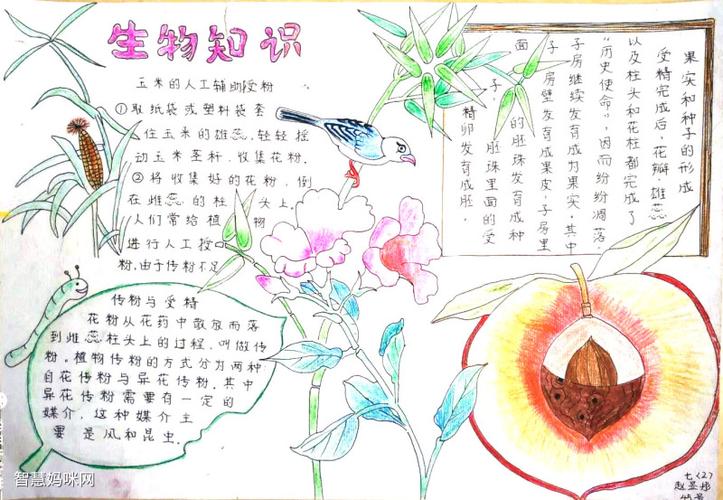 生物知识
玉米的人工辅助授粉
①取纸袋或塑料袋套
住玉米的雄蕊,轻轻摇
动玉米茎秆,收集花粉.
②将收集好的花粉,倒
在雌蕊的柱头上.
人们常给植物
进行人工授
粉,由于传粉不足
果实和种子的形成
受精完成后,花瓣、雄蕊
以及柱头和花柱都完成了
“历史使命”,因而纷纷凋落.
子房继续发育成为果实,其中
子房壁发育成果皮,子房里
面的胚珠发育成种
子,胚珠里面的受
精卵发育成胚.
传粉与受精
花粉从花药中散放而落
到雌蕊柱头上的过程,叫做传
粉.植物传粉的方式分为两种
自花传粉与异花传粉.其中
异花传粉需要有一定的
媒介,这种媒介主
要是风和昆虫.
七〈2〉
智慧妈咪网